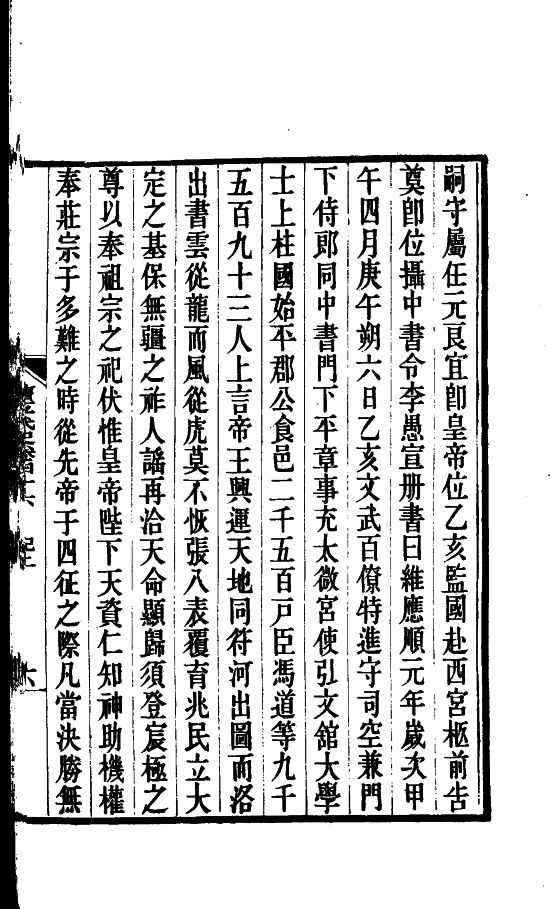 嗣守屬任元良宜卽皇帝位乙亥監國赴西宮柩前告
奠卽位攝中書令李愚宣册書曰維應順元年歲次甲
午四月庚午朔六日乙亥文武百僚特進守司空兼門
下侍郎同中書門下平章事充太微宮使弘文舘大學
士上柱國始平郡公食邑二千五百戶臣馮道等九千
五百九十三人上言帝王興運天地同符河出圖而洛
出書雲從龍而風從虎莫不恢張八表覆育兆民立大
定之基保無疆之祚人謠再洽天命顯歸須登宸極之
尊以奉祖宗之祀伏惟皇帝陛下天資仁知神助機權
奉莊宗于多難之時從先帝于四征之際凡當決勝無
六